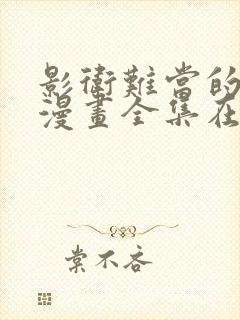 影衛難當的
漫畫全集在
棠不吝